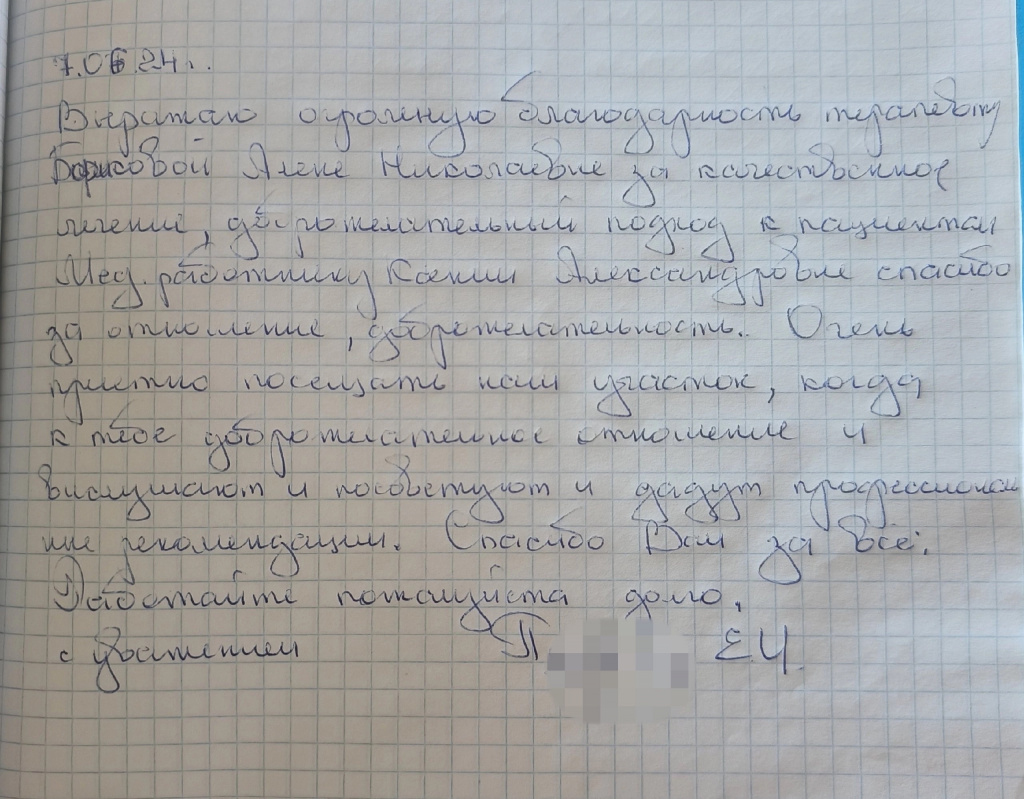 7.06.24г.
Выражаю огромную благодарность терапевту
Борисовой Алене Николаевне за качественное
лечение, доброжелательный подход к пациентам
Мед. работнику Ксении Александровне спасибо
за отношение, доброжелательность. Очень
приятно посещать наш участок, когда
к тебе доброжелательное отношение и
выслушают и посоветуют и дадут профессиональ
ные рекомендации. Спасибо Вам за всё.
Работайте пожалуйста долго.
с уважением П Е.И.